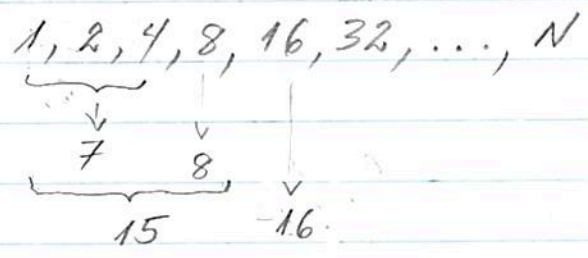 1, 2, 4, 8, 16, 32, ..., N
7 8
15 16